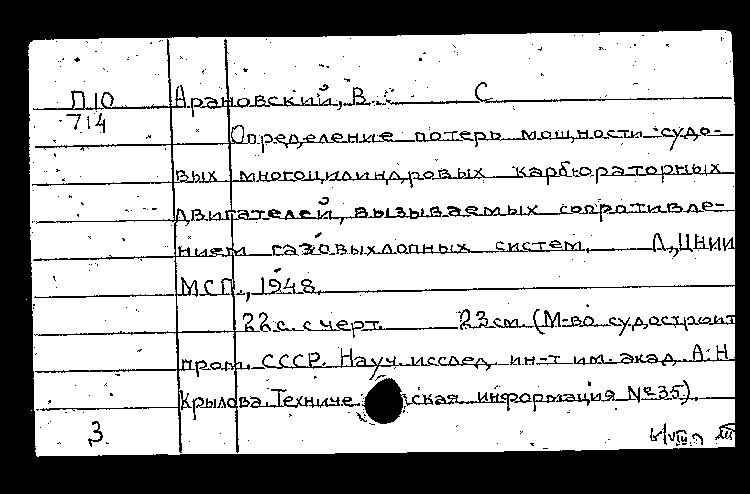 П10 Арановский, В. С
714
Определение потерь мощности судо-
вых многоцилиндровых карбюраторных
двигателей, вызываемых сопротивле-
нием газовыхлопных систем. Л., ЦНИИ
МСП., 1948.
22с. с черт. 23см. (М-во судостроит
пром. СССР. Науч. исслед. ин-т им. акад. А.Н
Крылова. Техниче ская информация №35).
3